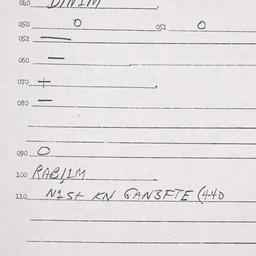 040 DINIM
050 0 051 0
052 —
060 —
070 +
080 —
090 0
100 RAB/IM
110 N1St KN GAN3FTE (440